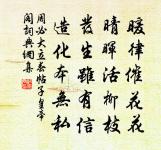 暖律催花花
晴暉活柳枝
發生雖有信
造化本無私
周必大立春帖子皇帝
閣詞典網集